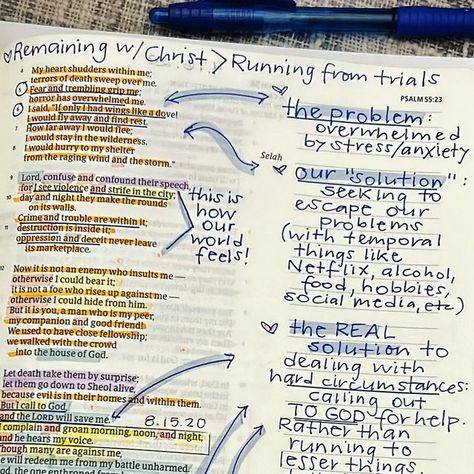 Remaining w/ Christ > Running from trials
PSALM 55:23
4 My heart shudders within me;
terrors of death sweep over me.
5 Fear and trembling grip me;
horror has overwhelmed me.
6 I said, "If only I had wings like a dove!
I would fly away and find rest.
7 How far away I would flee;
I would stay in the wilderness.
Selah
8 I would hurry to my shelter
from the raging wind and the storm."
9 Lord, confuse and confound their speech,
for I see violence and strife in the city;
10 day and night they make the rounds
on its walls.
Crime and trouble are within it;
11 destruction is inside it;
oppression and deceit never leave
its marketplace.
12 Now it is not an enemy who insults me —
otherwise I could bear it;
it is not a foe who rises up against me —
otherwise I could hide from him.
But it is you, a man who is my peer,
my companion and good friend!
We used to have close fellowship;
we walked with the crowd
into the house of God.
Let death take them by surprise;
let them go down to Sheol alive,
because evil is in their homes and within them.
But I call to God,
and the LORD will save me.
I complain and groan morning, noon, and night,
and he hears my voice.
Though many are against me,
he will redeem me from my battle unharmed.
God, the one enthroned
this is
how
our
world
feels!
8.15.20
the problem:
overwhelmed
by stress/anxiety
our "solution":
seeking to
escape our
problems
(with temporal
things like
Netflix, alcohol,
food, hobbies,
social media, etc)
the REAL
solution to
dealing with
hard circumstances:
calling out
TO GOD for help.
Rather than
running to
lesser things.